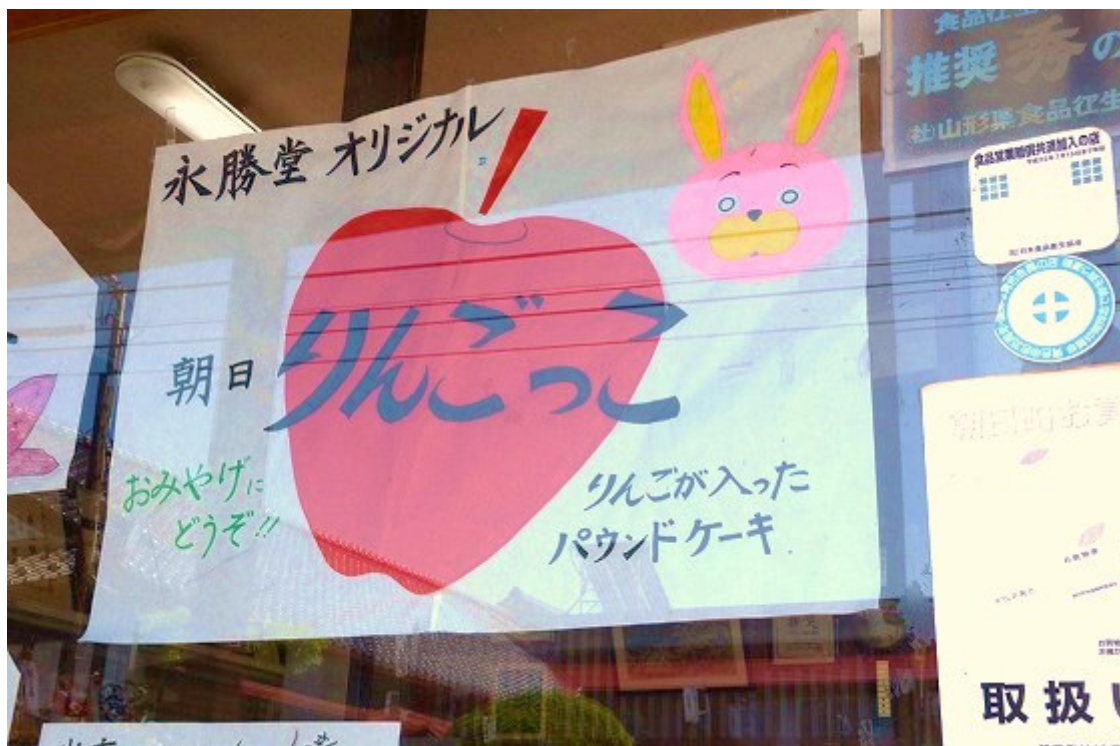 永勝堂 オリジナル
朝日 りんごっこ
おみやげに
どうぞ!!
りんごが入った
パウンドケーキ
推奨 秀の
食品営業賠償共済加入の店
取扱